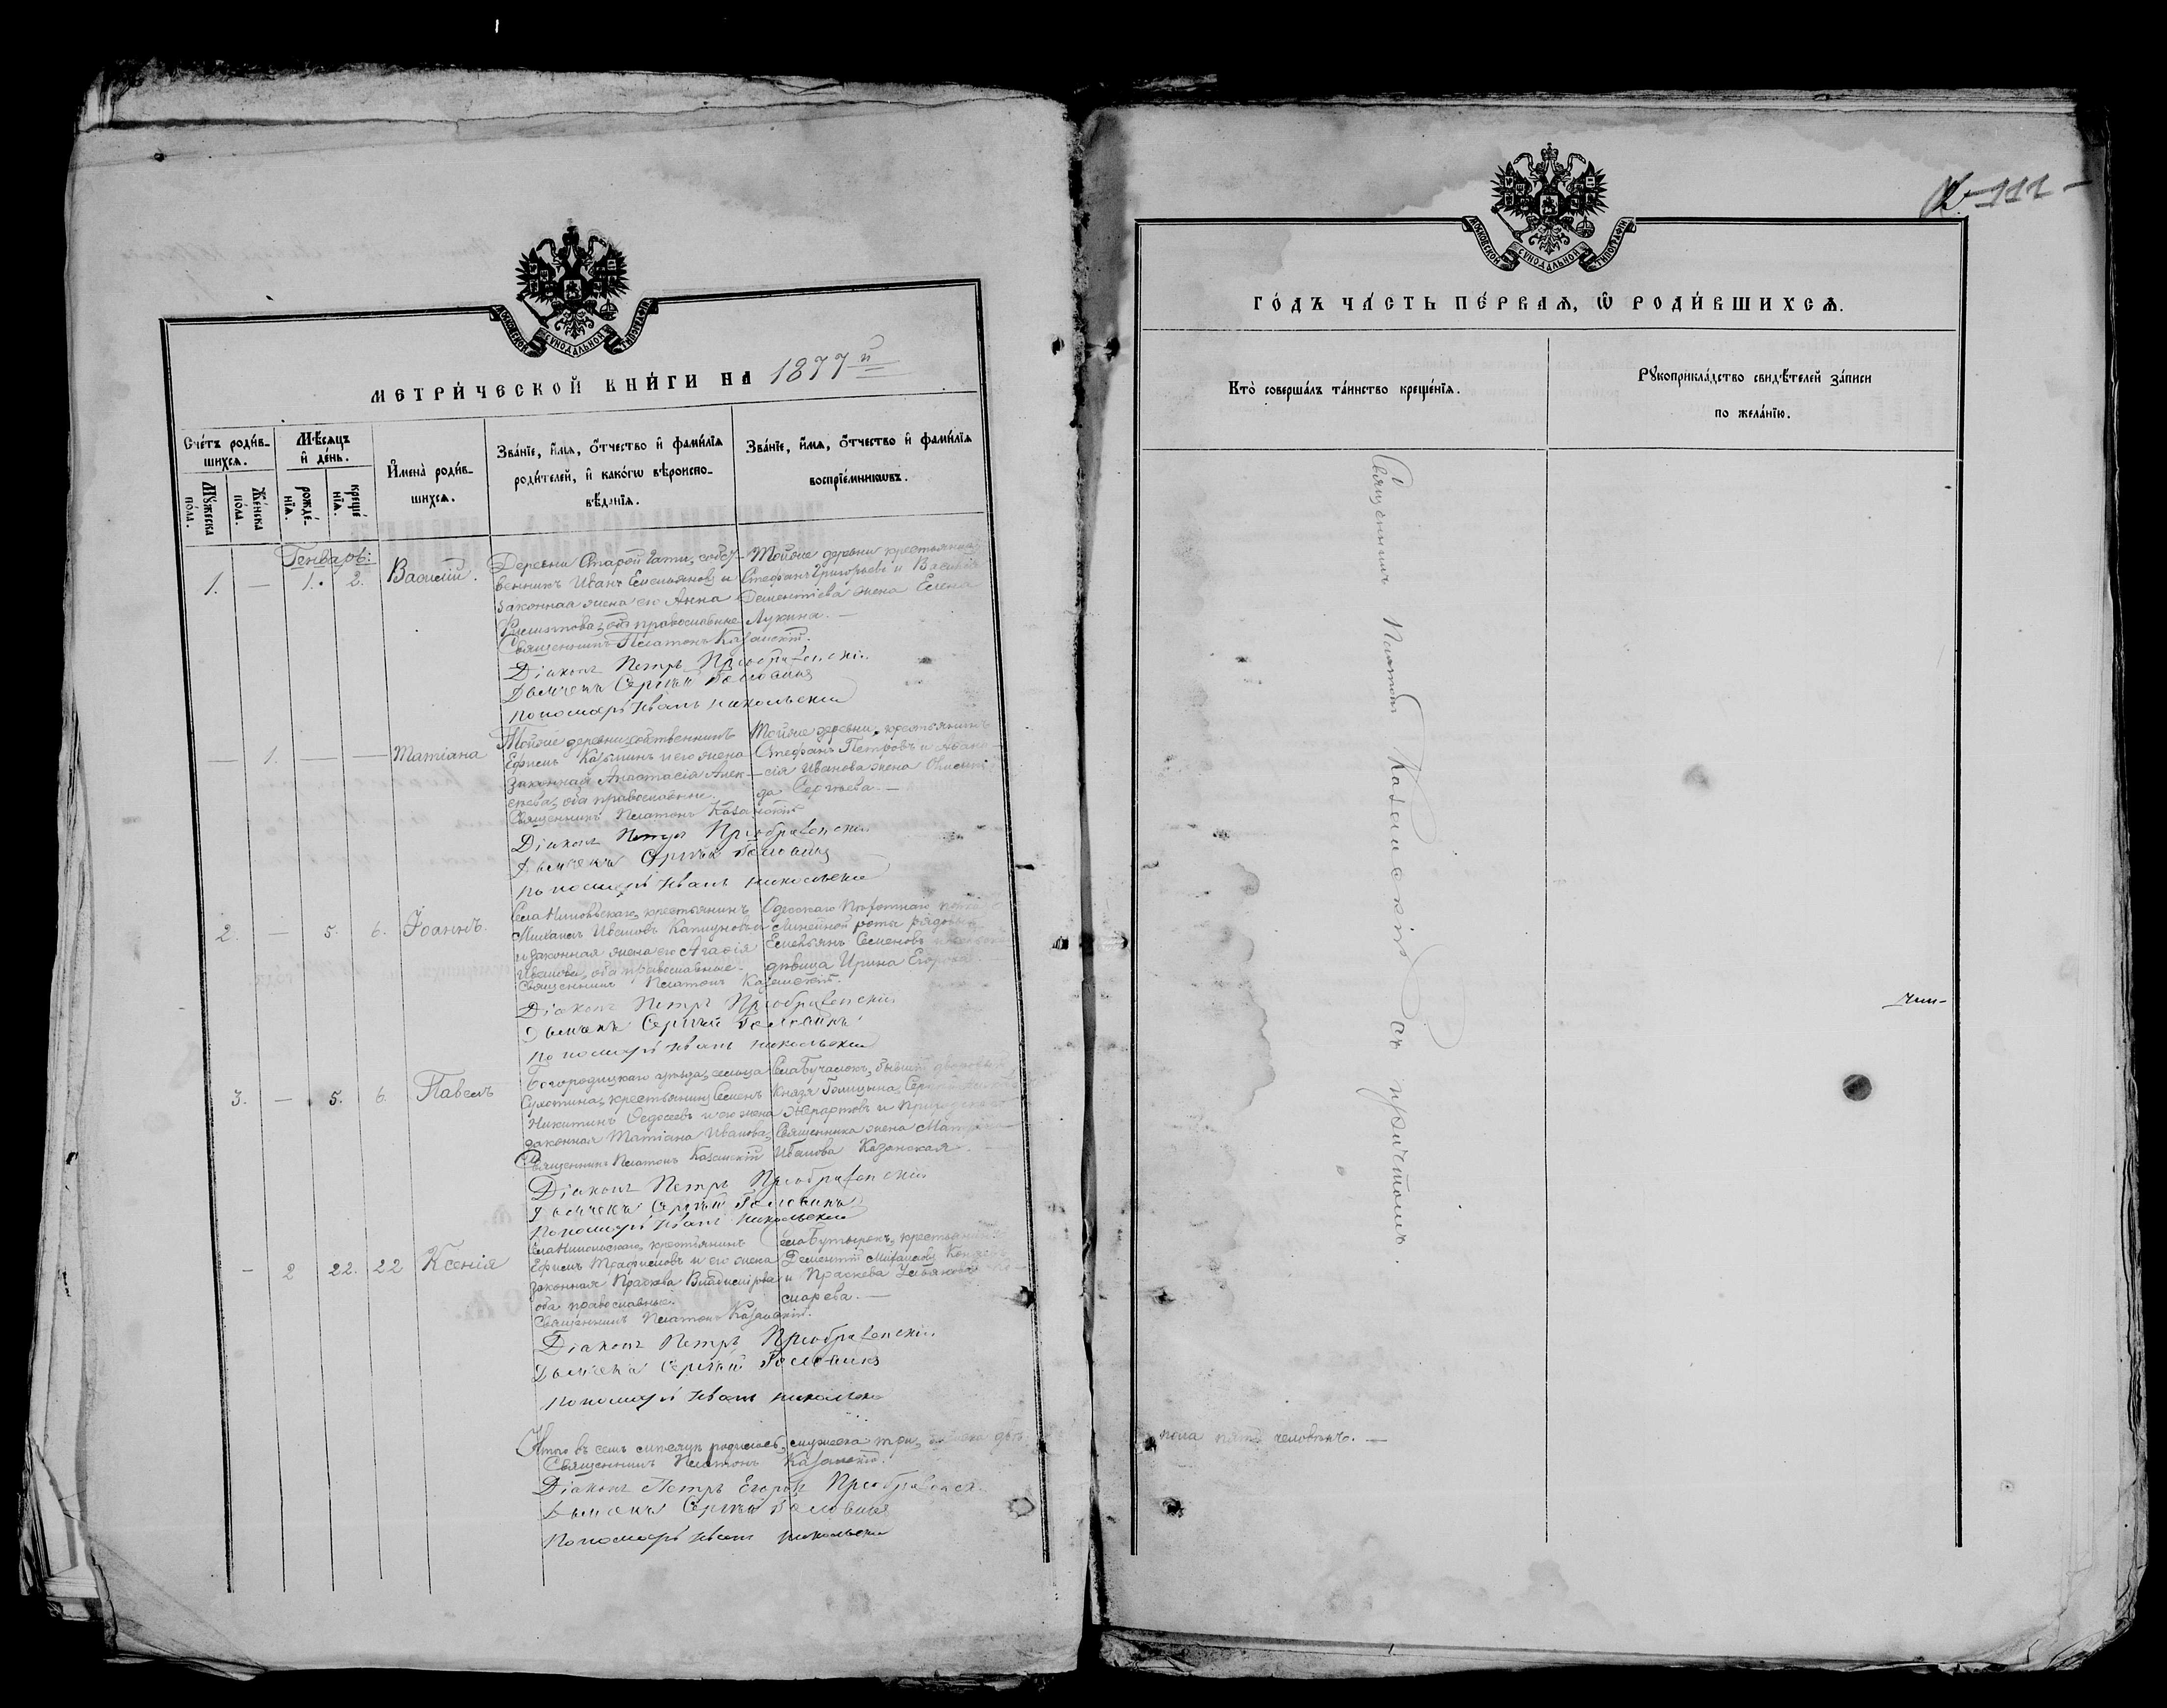 МОСКОВСКОЙ СѴНОДАЛЬНОЙ ТИПОГРАФІИ
МЕТРИ́ЧЕСКОЙ КНИ́ГИ НА 1877й
Сче́тъ роди́в-
шихсѧ.
Мѣ́сяцъ
и҆ де́нь.
И҆мена̀ роди́в-
шихсѧ.
Зва́нїе, и҆́мѧ, ѻ҆́тчество и҆ фами́лїѧ
роди́телей, и҆ како́гѡ вѣроиспо-
вѣ́данїѧ.
Зва́нїе, и҆́мѧ, ѻ҆́тчество и҆ фами́лїѧ
воспрїе́мникѡвъ.
Мꙋ́жеска
по́ла.
Же́нска
по́ла.
рожде́-
нїѧ.
креще́
нїѧ.
Генварь:
1. — 1. 2. Василій.
Деревни Старой Гати, собст-
венникъ Иванъ Емельяновъ и
законная жена его Анна
Филиппова, оба православные
Священникъ Платонъ Казанскій.
Діаконъ Петръ Преображенскій
Дьячекъ Сергѣй Головинъ
Пономарь Иванъ Никольскій
Тойже деревни крестьянинъ
Стефанъ Григорьевъ и Василія
Дементіева жена Елена
Лукина. —
— 1. — — Татіана
Тойже деревни собственникъ
Ефимъ Козьминъ и его жена
законная Анастасія Алек-
сѣева, оба православные.
Священникъ Платонъ Казанскій
Діаконъ Петръ Преображенскій
Дьячекъ Сергѣй Головинъ
Пономарь Иванъ Никольскій
Тойже деревни, крестьянинъ
Стефанъ Петровъ и Афана-
сія Иванова жена
Сергѣева. —
2. — 5. 6. Іоаннъ.
крестьянинъ
Михаилъ Ивановъ
и законная жена его Агафія
Иванова, оба православные.
Священникъ Платонъ Казанскій.
Діаконъ Петръ Преображенскій
Дьячекъ Сергѣй Головинъ
Пономарь Иванъ Никольскій
Одесскаго
линейной роты рядовый
Емельянъ Семеновъ
дѣвица Ирина Егорова
3. — 5. 6. Павелъ
Богородицкаго уѣзда, сельца
Сухотина, крестьянинъ Семенъ
Никитинъ Федосеевъ и его жена
законная Татіана Иванова,
Священникъ Платонъ Казанскій
Діаконъ Петръ Преображенскій
Дьячекъ Сергѣй Головинъ
Пономарь Иванъ Никольскій
Села Бучалокъ, бывшій дворовый
Князя Голицына,
и Приходскаго
Священника жена
Иванова Казанская.
— 2 22. 22 Ксенія
Села Никольскаго, крестьянинъ
Ефимъ Трофимовъ и его жена
законная Праскева Владимірова
оба православные.
Священникъ Платонъ Казанскій.
Діаконъ Петръ Преображенскій
Дьячекъ Сергѣй Головинъ
Пономарь Иванъ Никольскій
Села Бутырокъ, крестьянинъ
Дементій Михаиловъ
и Праскева
Итого въ семъ мѣсяцѣ родилось, мужеска три, женска двѣ
Священникъ Платонъ Казанскій.
Діаконъ Петръ Егоровъ Преображенскій
Дьячекъ Сергѣй Головинъ
Пономарь Иванъ Никольскій
111 —
МОСКОВСКОЙ СѴНОДАЛЬНОЙ ТИПОГРАФІИ
ГО́ДЪ ЧА́СТЬ ПЕ́РВАѦ, Ѡ҆ РОДИ́ВШИХСѦ.
Кто̀ соверша́лъ та́инство креще́нїѧ.
Рꙋкоприкла́дство свидѣ́телей за́писи
по жела́нїю.
Священникъ Платонъ Казанскій съ причтомъ.
пола пять человѣкъ. —